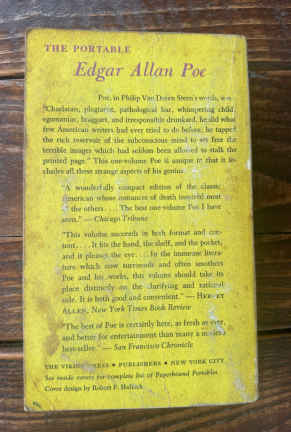 THE PORTABLE
Edgar Allan Poe
Poe, in Philip Van Doren Stern's words, was
"Charlatan, plagiarist, pathological liar, whimpering child,
egomaniac, braggart, and irresponsible drunkard, he did what
few American writers had ever tried to do before; he tapped
the rich reservoir of the subconscious mind to set free the
terrible images which had seldom been allowed to stalk the
printed page." This one-volume Poe is unique in that it in-
cludes all these strange aspects of his genius.
"A wonderfully compact edition of the classic
American whose romances of death inspired most
of the others. . . . The best one-volume Poe I have
seen."—Chicago Tribune
"This volume succeeds in both format and con-
tent. . . . It fits the hand, the shelf, and the pocket,
and it pleases the eye. . . . In the immense litera-
ture which now surrounds and often smothers
Poe and his works, this volume should take its
place distinctly on the clarifying and rational
side. It is both good and convenient."—HERVEY
ALLEN, New York Times Book Review
"The best of Poe is certainly here, as fresh as ever,
and better for entertainment than many a modern
best-seller."—San Francisco Chronicle
THE VIKING PRESS • PUBLISHERS • NEW YORK CITY
See inside covers for complete list of Paperbound Portables
Cover design by Robert P. Hallock